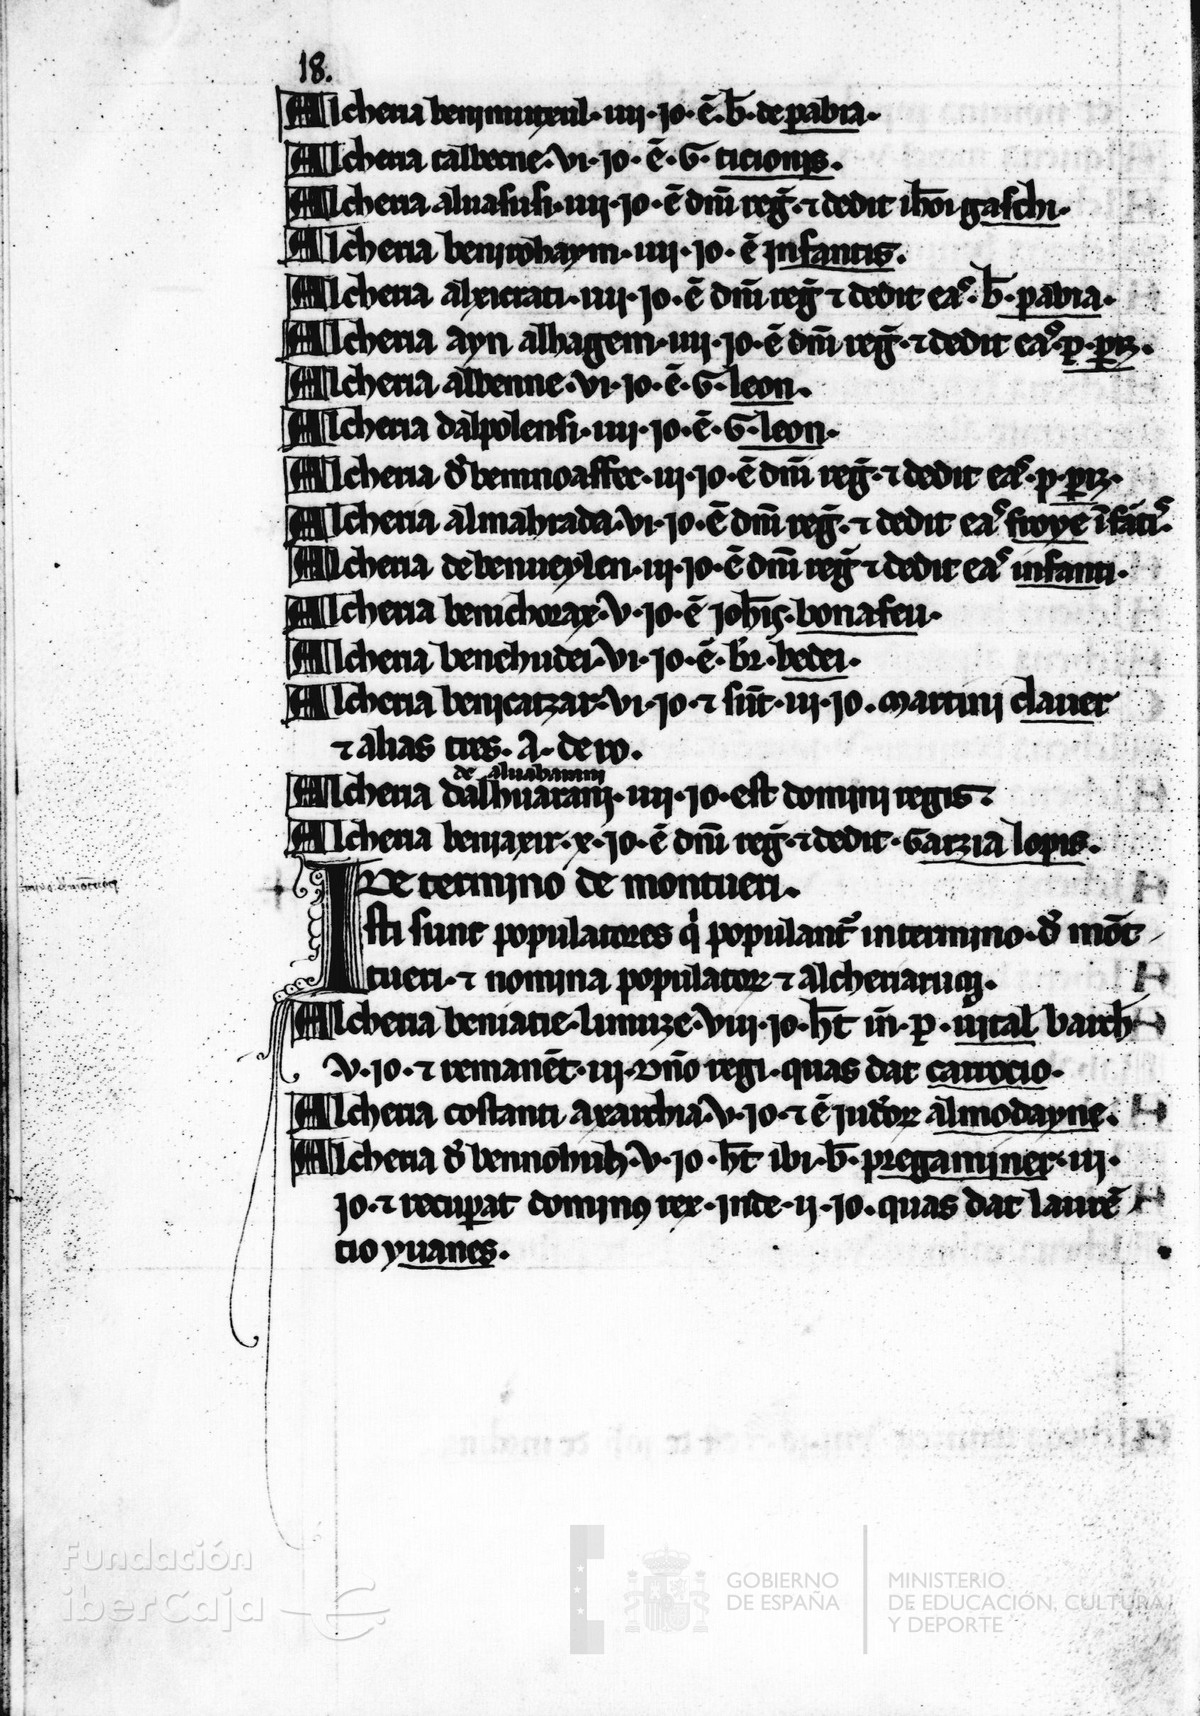 18.
Alcheria benimutxul·iiii·jo·ē·b̄·de pabia·
Alcheria calbecne·vi·jo·ē·G·ticionis·
Alcheria aluasusi·iiii·jo·ē dn̄i reḡ·⁊ dedit gaschi·
Alcheria benirohaym·iiii·jo·ē infantis·
Alcheria alxicrati·iiii·jo·ē dn̄i reḡ ⁊ dedit eaꝫ·b̄·pabia·
Alcheria ayn alhagem·iiii·jo·ē dn̄i reḡ·⁊ dedit eaꝫ·p·
Alcheria albenne·vi·jo·ē·G·leon·
Alcheria dalpolensi·iiii·jo·ē·G·leon·
Alcheria đ beninoaffec·iii·jo·ē dn̄i reḡ·⁊ dedit eaꝫ·p·
Alcheria almahrada·vi·jo·ē dn̄i reḡ·⁊ dedit eaꝫ
Alcheria de benueylen·iii·jo·ē dn̄i reḡ ⁊ dedit eaꝫ infanti·
Alcheria benichorax·v·jo·ē joh̄is·bonafeu·
Alcheria benehudei·vi·jo·ē·br̄·bedei·
Alcheria benicatzar·vi·jo·⁊ sūt·iii·jo·martini clauer
⁊ alias tres·a·de ro·
de aluabarini
Alcheria dalhuarani·iiii·jo·est domini regis ⁊
Alcheria beniaxir·x·jo·ē dn̄i reḡ·⁊ dedit·Garzia lopis·
De termino de montueri·
Isti sunt populatores q̇ populant̄ in termino·đ mōt
tueri·⁊ nomina populatoꝝ ⁊ alcheriarum·
Alcheria beniatie·limuze·viii·jo·h̄t in̄·p·uital barch̄
v·jo·⁊ remanēt·iii·dn̄o regi·quas dat carrocio·
Alcheria costanti axarchia·v·jo·⁊ ē judeoꝝ almodayne·
Alcheria đ bennohuh·v·jo·h̄t ibi·b̄·pregaminer·iii·
jo·⁊ recuperat dominus rex·inde·ii·jo·quas dat laurē
cio yuanes·
Fundación
iberCaja
GOBIERNO
DE ESPAÑA
MINISTERIO
DE EDUCACIÓN, CULTURA
Y DEPORTE